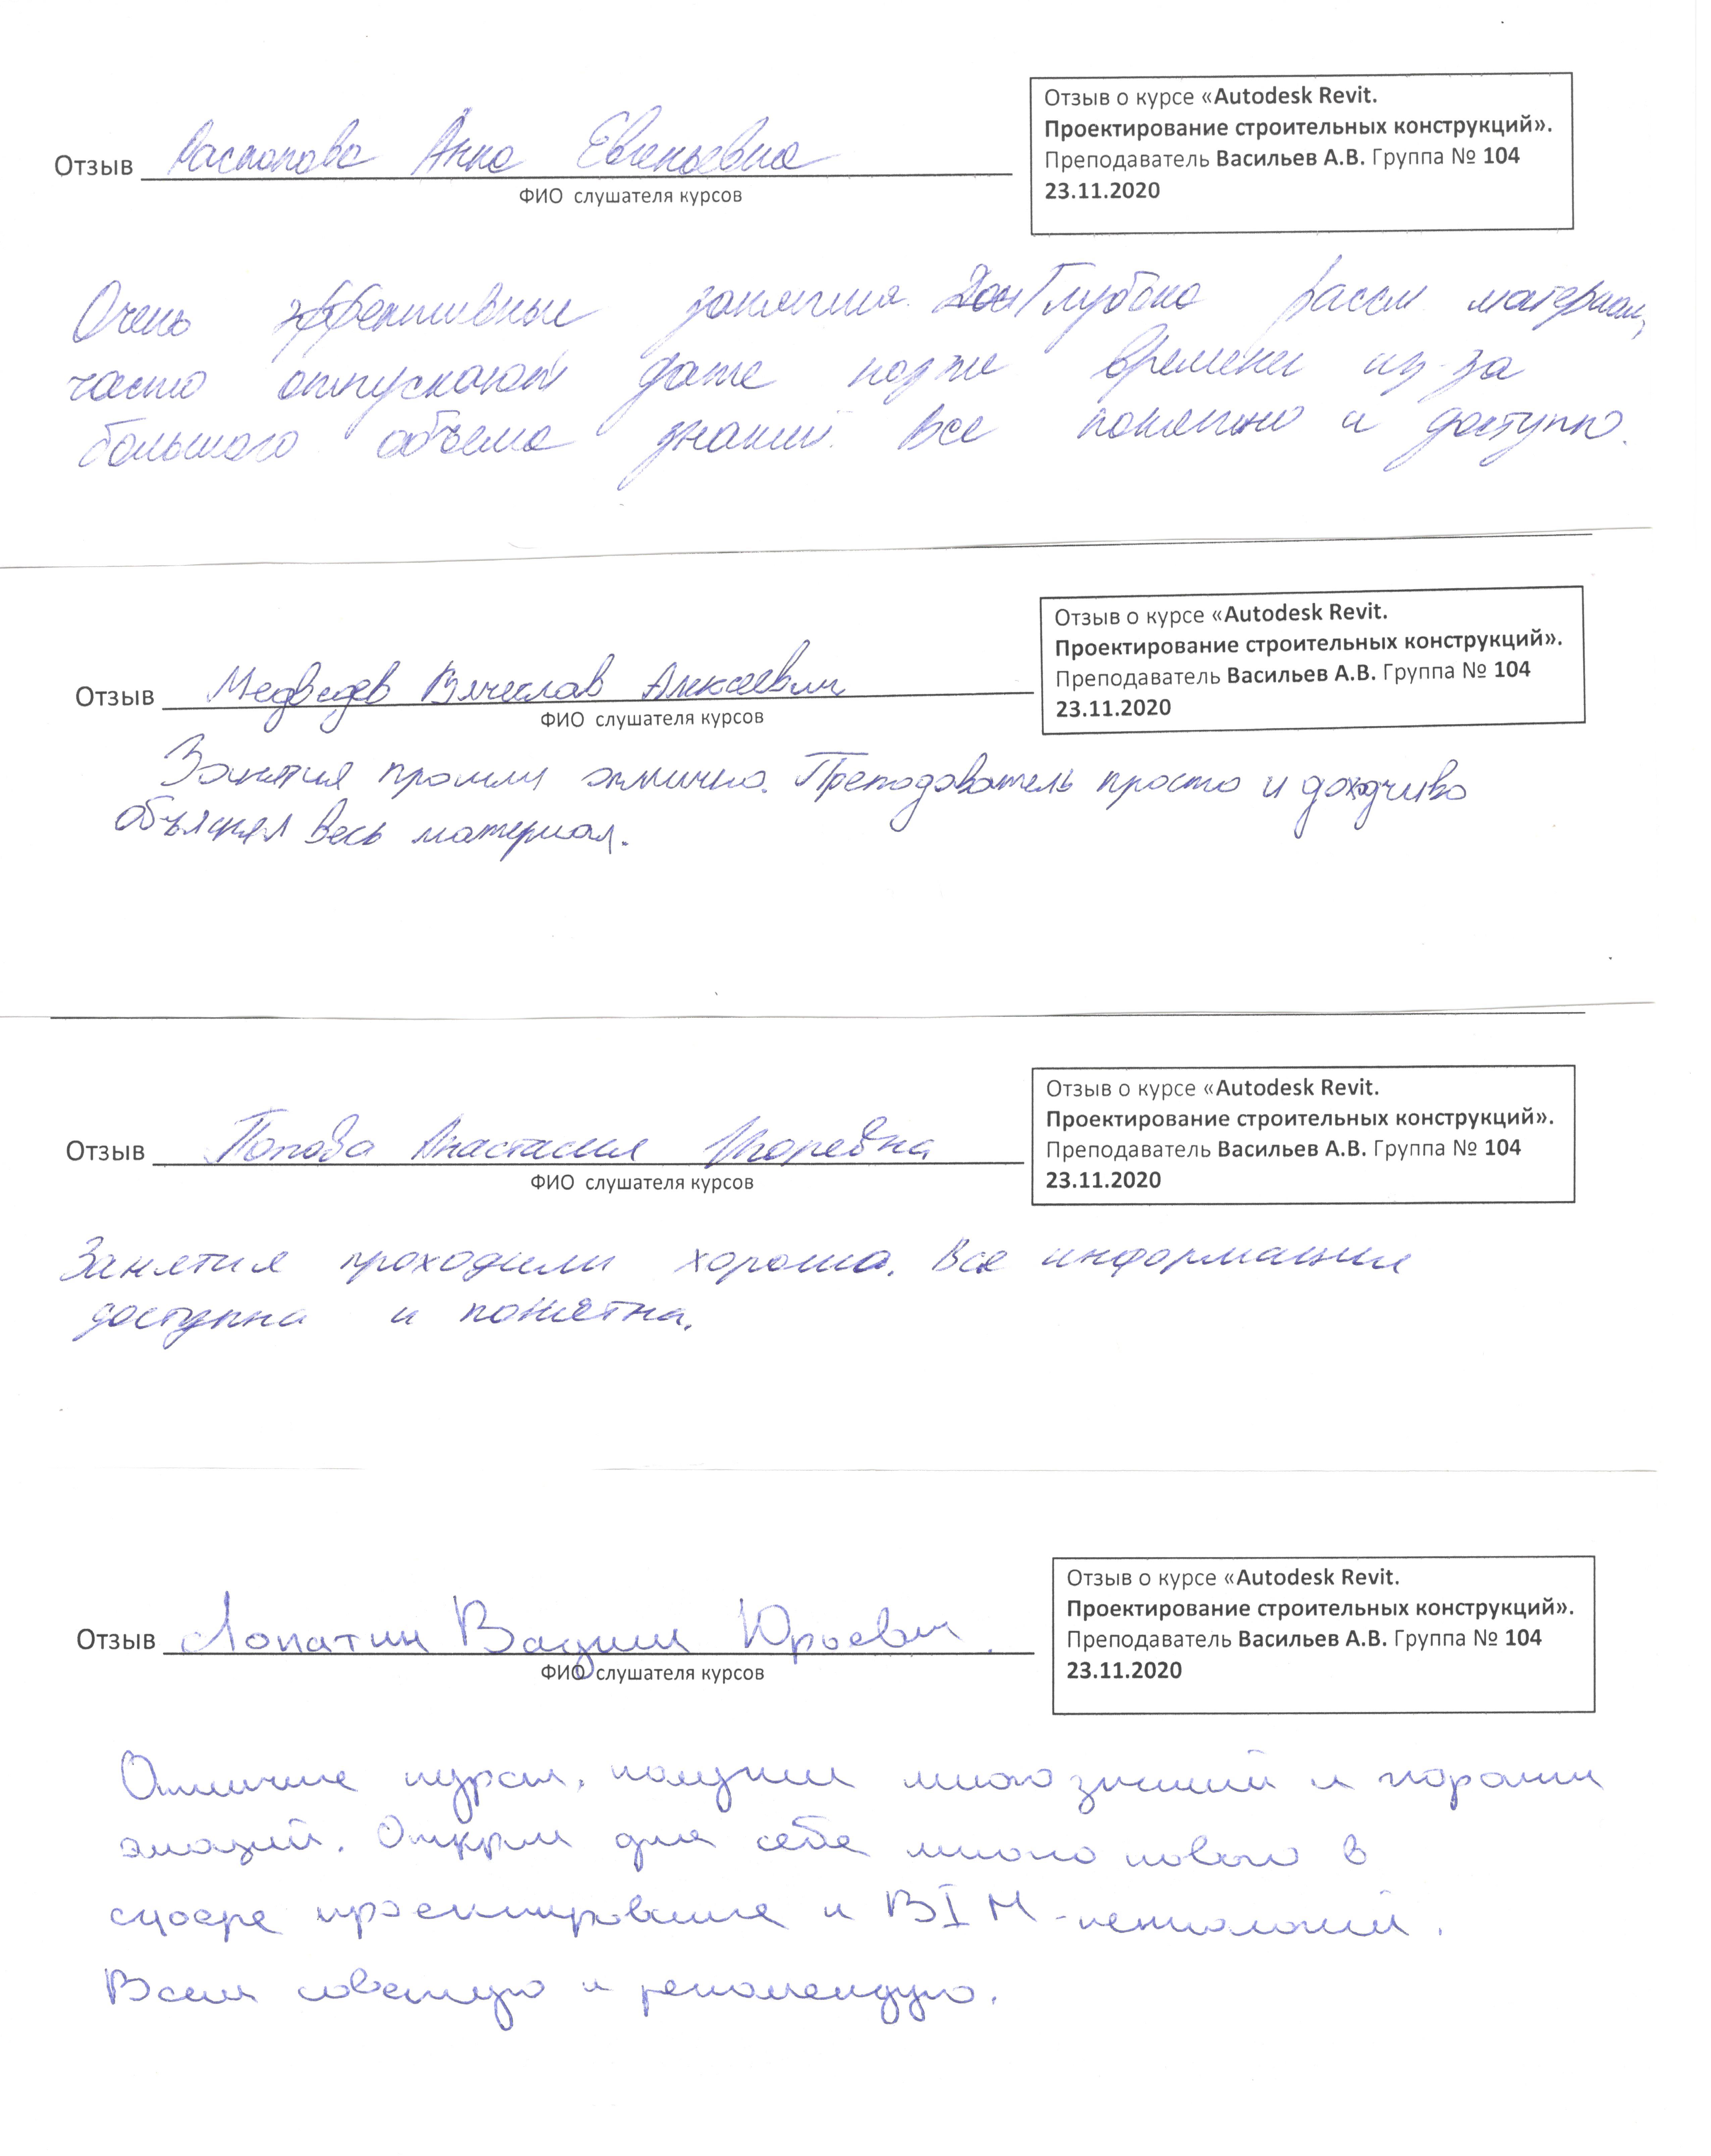 Отзыв о курсе «Autodesk Revit.
Проектирование строительных конструкций».
Преподаватель Васильев А.В. Группа № 104
23.11.2020
Отзыв Распопова Анна Евгеньевна
ФИО слушателя курсов
Очень эффективные занятия. Глубоко рассм материал,
часто отпускают даже позже времени из-за
большого объема знаний. Все понятно и доступно.
Отзыв о курсе «Autodesk Revit.
Проектирование строительных конструкций».
Преподаватель Васильев А.В. Группа № 104
23.11.2020
Отзыв Медведев Вячеслав Алексеевич
ФИО слушателя курсов
Занятия прошли отлично. Преподователь просто и доходчиво
объяснял весь материал.
Отзыв о курсе «Autodesk Revit.
Проектирование строительных конструкций».
Преподаватель Васильев А.В. Группа № 104
23.11.2020
Отзыв Попова Анастасия Игоревна
ФИО слушателя курсов
Занятия проходили хорошо. Вся информация
доступна и понятна.
Отзыв о курсе «Autodesk Revit.
Проектирование строительных конструкций».
Преподаватель Васильев А.В. Группа № 104
23.11.2020
Отзыв Лопатин Вадим Юрьевич.
ФИО слушателя курсов
Отличные курсы, получил много знаний и хороших
эмоций. Открыл для себя много нового в
сфере проектирования и BIM-технологий.
Всем советую и рекомендую.